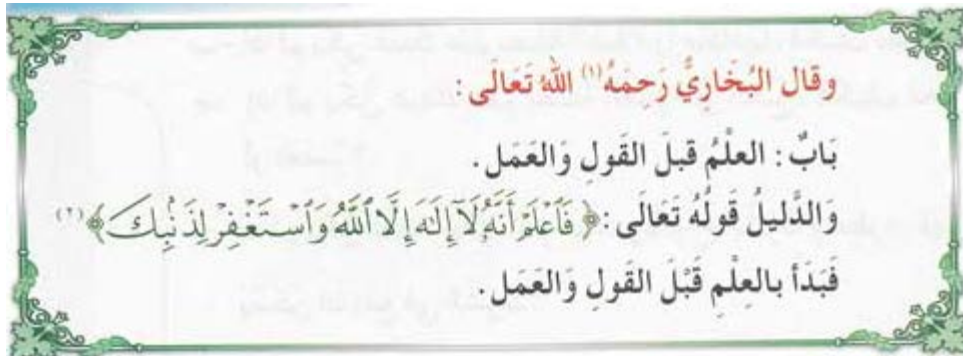 وقال البُخَارِيُّ رَحِمَهُ(١) اللهُ تَعَالَى:
بَابٌ: العلْمُ قبلَ القَولِ وَالعَمَل.
وَالدَّليلُ قَولُهُ تَعَالَى: ﴿فَٱعْلَمْ أَنَّهُۥ لَآ إِلَٰهَ إِلَّا ٱللَّهُ وَٱسْتَغْفِرْ لِذَنۢبِكَ﴾(٢)
فَبَدَأ بالعِلْمِ قَبْلَ القَولِ وَالعَمَل.